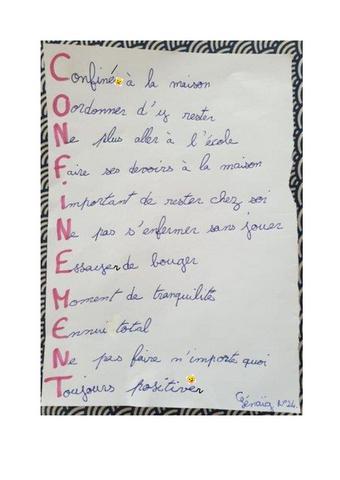 Confiné à la maison
Oordonner d'y rester
Ne plus aller à l'école
Faire ses devoirs à la maison
Important de rester chez soi
Ne pas s'enfermer sans jouer
Essayer de bouger
Moment de tranquilités
Ennui total
Ne pas faire n'importe quoi
Toujours positiver
Génaïg N°24.